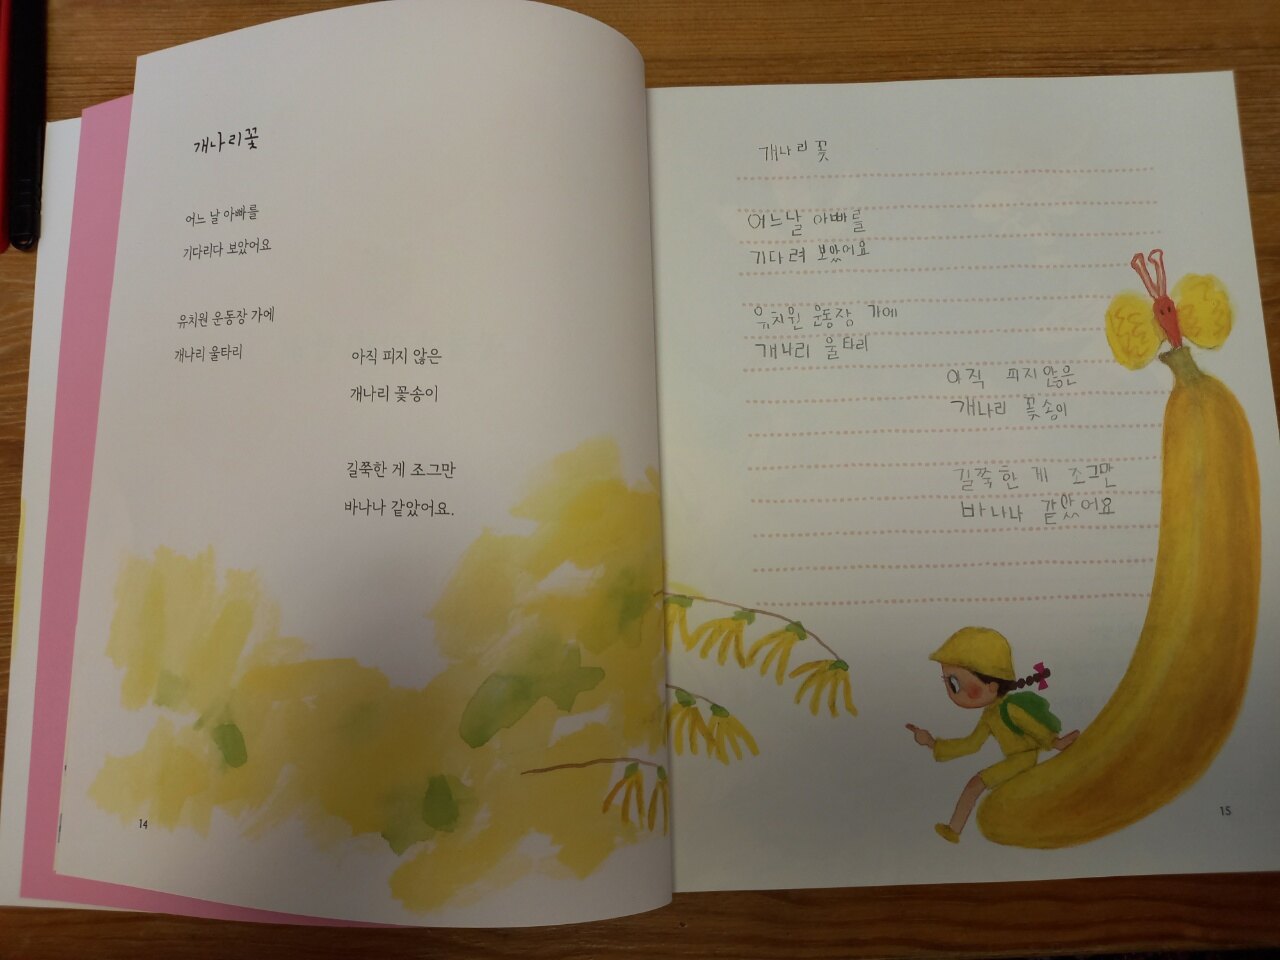 개나리꽃
어느 날 아빠를
기다리다 보았어요
유치원 운동장 가에
개나리 울타리
아직 피지 않은
개나리 꽃송이
길쭉한 게 조그만
바나나 같았어요.
14
개나리꽃
어느날 아빠를
기다려 보았어요
유치원 운동장 가에
개나리 울타리
아직 피지 않은
개나리 꽃송이
길쭉한 게 조그만
바나나 같았어요
15